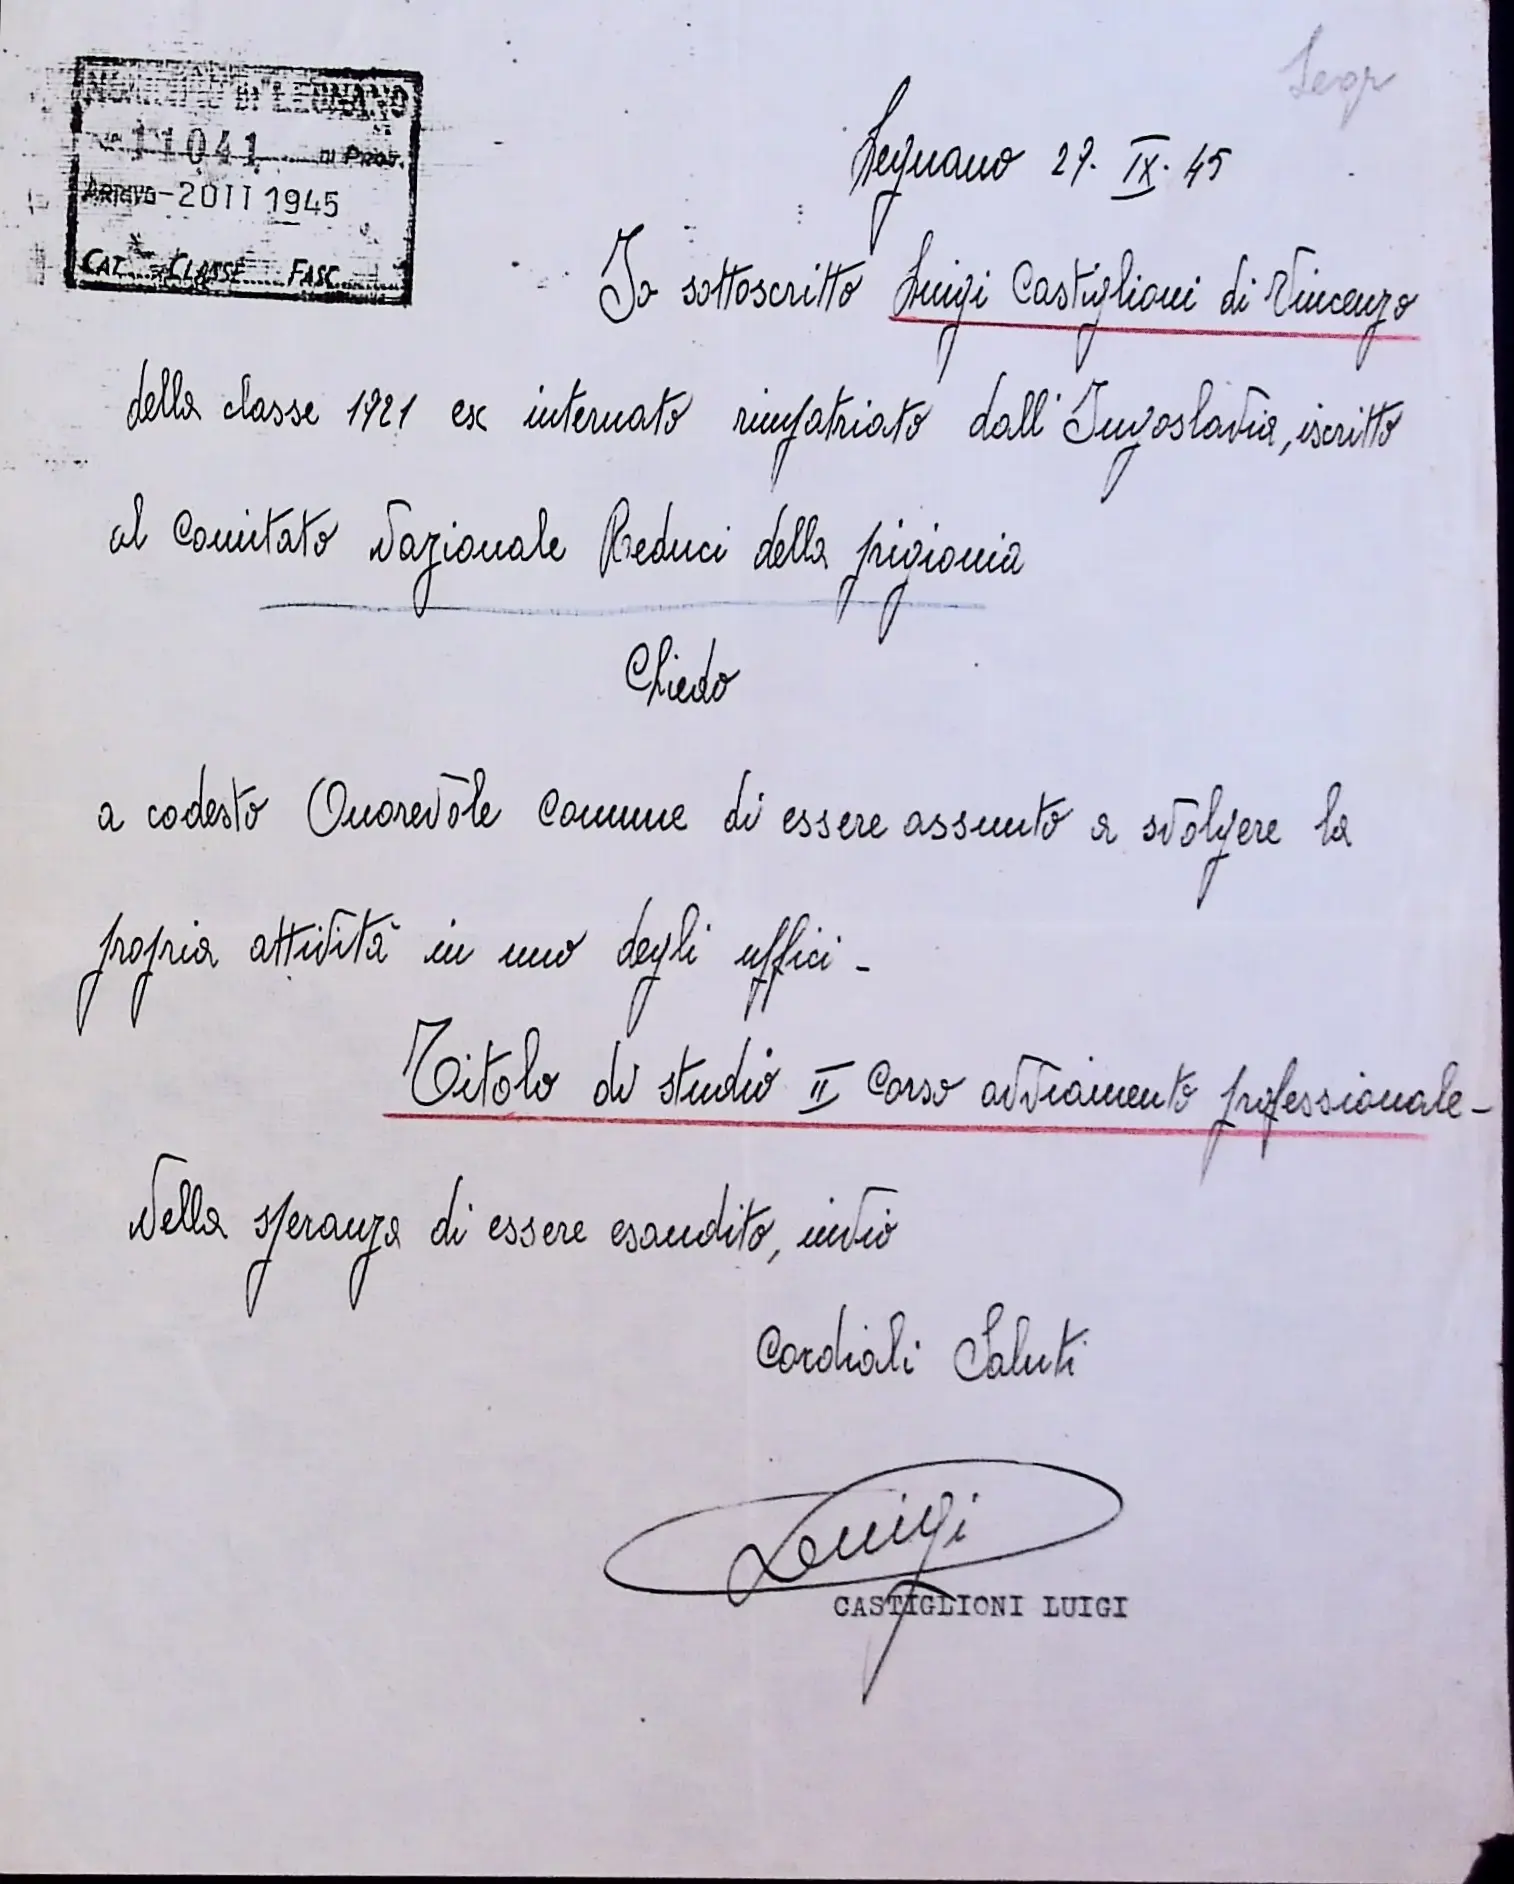 MUNICIPIO DI LEGNANO
N. 11041 DI PROT.
ARRIVO - 2 OTT 1945
CAT. CLASSE FASC.
Legnano 27. IX. 45
Io sottoscritto Luigi Castiglioni di Vincenzo
della classe 1921 ex internato rimpatriato dall'Jugoslavia, iscritto
al Comitato Nazionale Reduci della prigionia
Chiedo
a codesto Onorevole Comune di essere assunto a svolgere la
propria attività in uno degli uffici -
Titolo di studio II Corso avviamento professionale -
Nella speranza di essere esaudito, invio
Cordiali Saluti
Luigi
CASTIGLIONI LUIGI